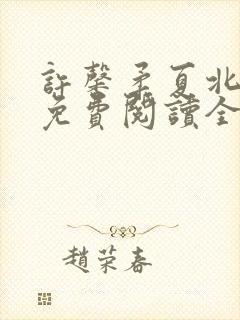 許馨予夏北
免費閱讀全
趙荣春